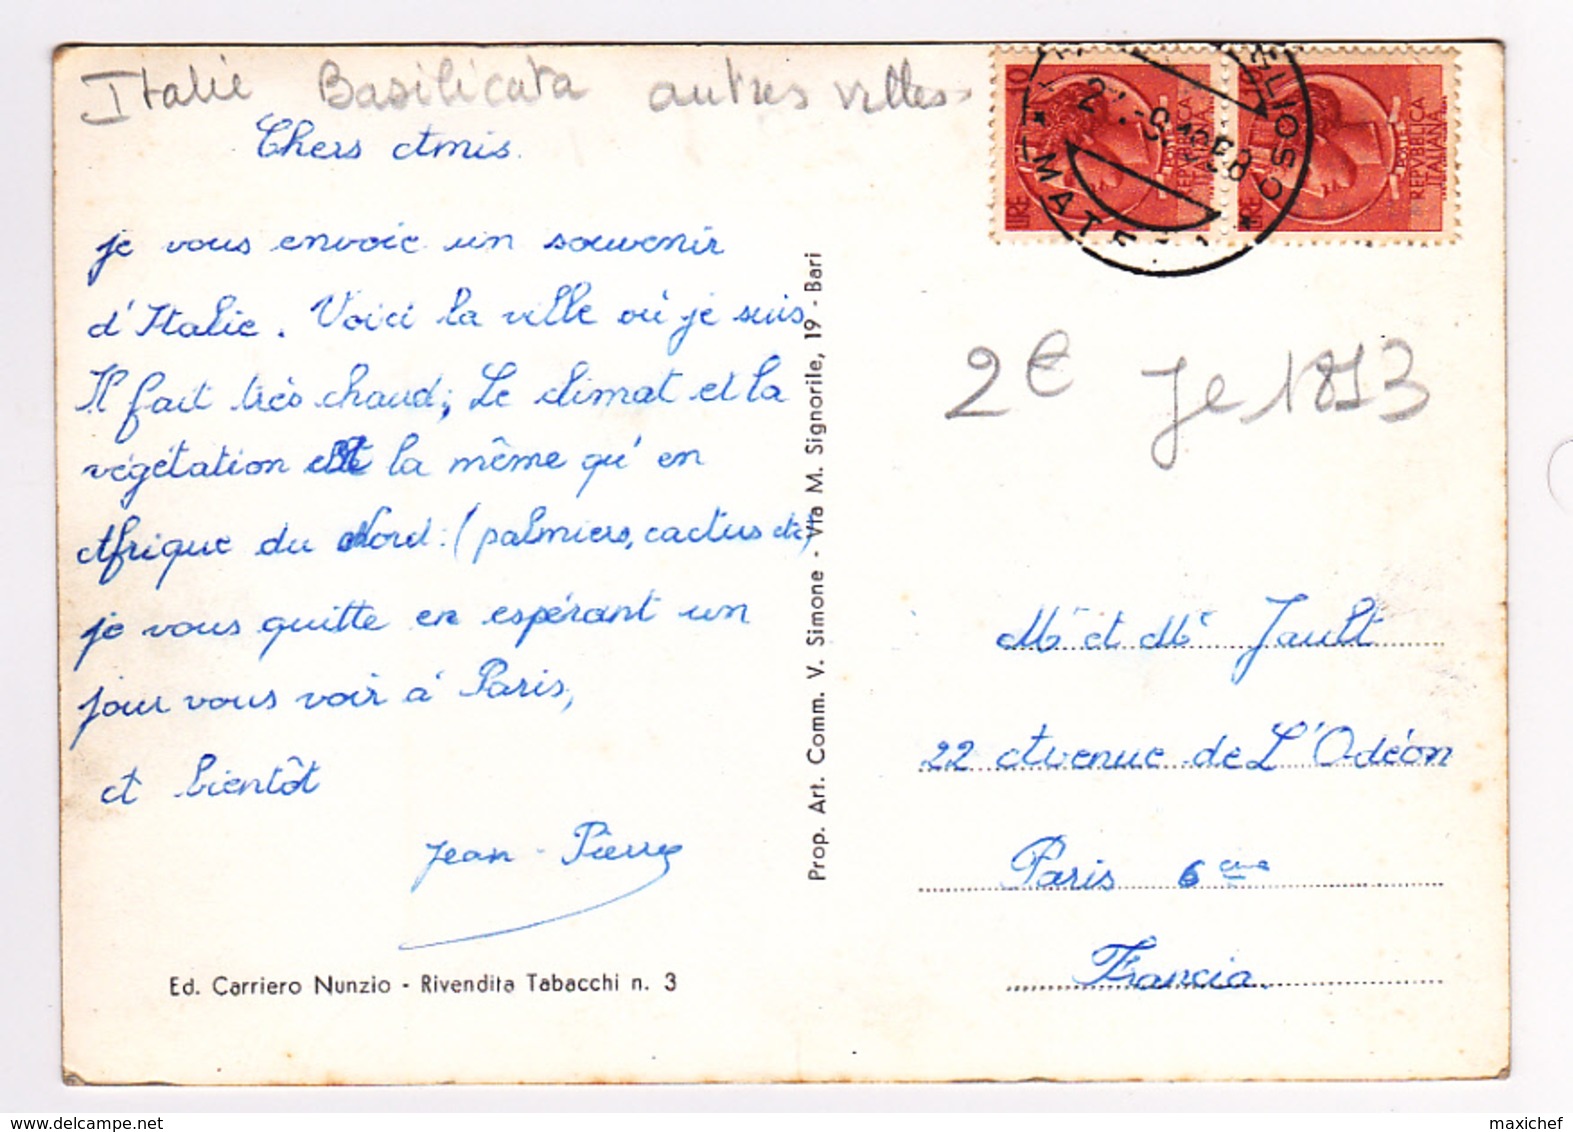 Italie Basilicata autres villes
Chers Amis.
je vous envoie un souvenir
d'Italie. Voici la ville où je suis
Il fait très chaud; Le climat et la
végétation est la même qu'en
Afrique du Nord: (palmiers, cactus etc)
je vous quitte en espérant un
jour vous voir à Paris,
et bientôt
Jean-Pierre
Ed. Carriero Nunzio - Rivendita Tabacchi n. 3
Prop. Art. Comm. V. Simone - Via M. Signorile, 19 - Bari
LIRE 10
POSTE
REPVBBLICA
ITALIANA
POSTE
REPVBBLICA
ITALIANA
2€ Je 1813
Mr et Me Jault
22 Avenue de L'Odéon
Paris 6eme
Francia.
www.delcampe.net
maxichef